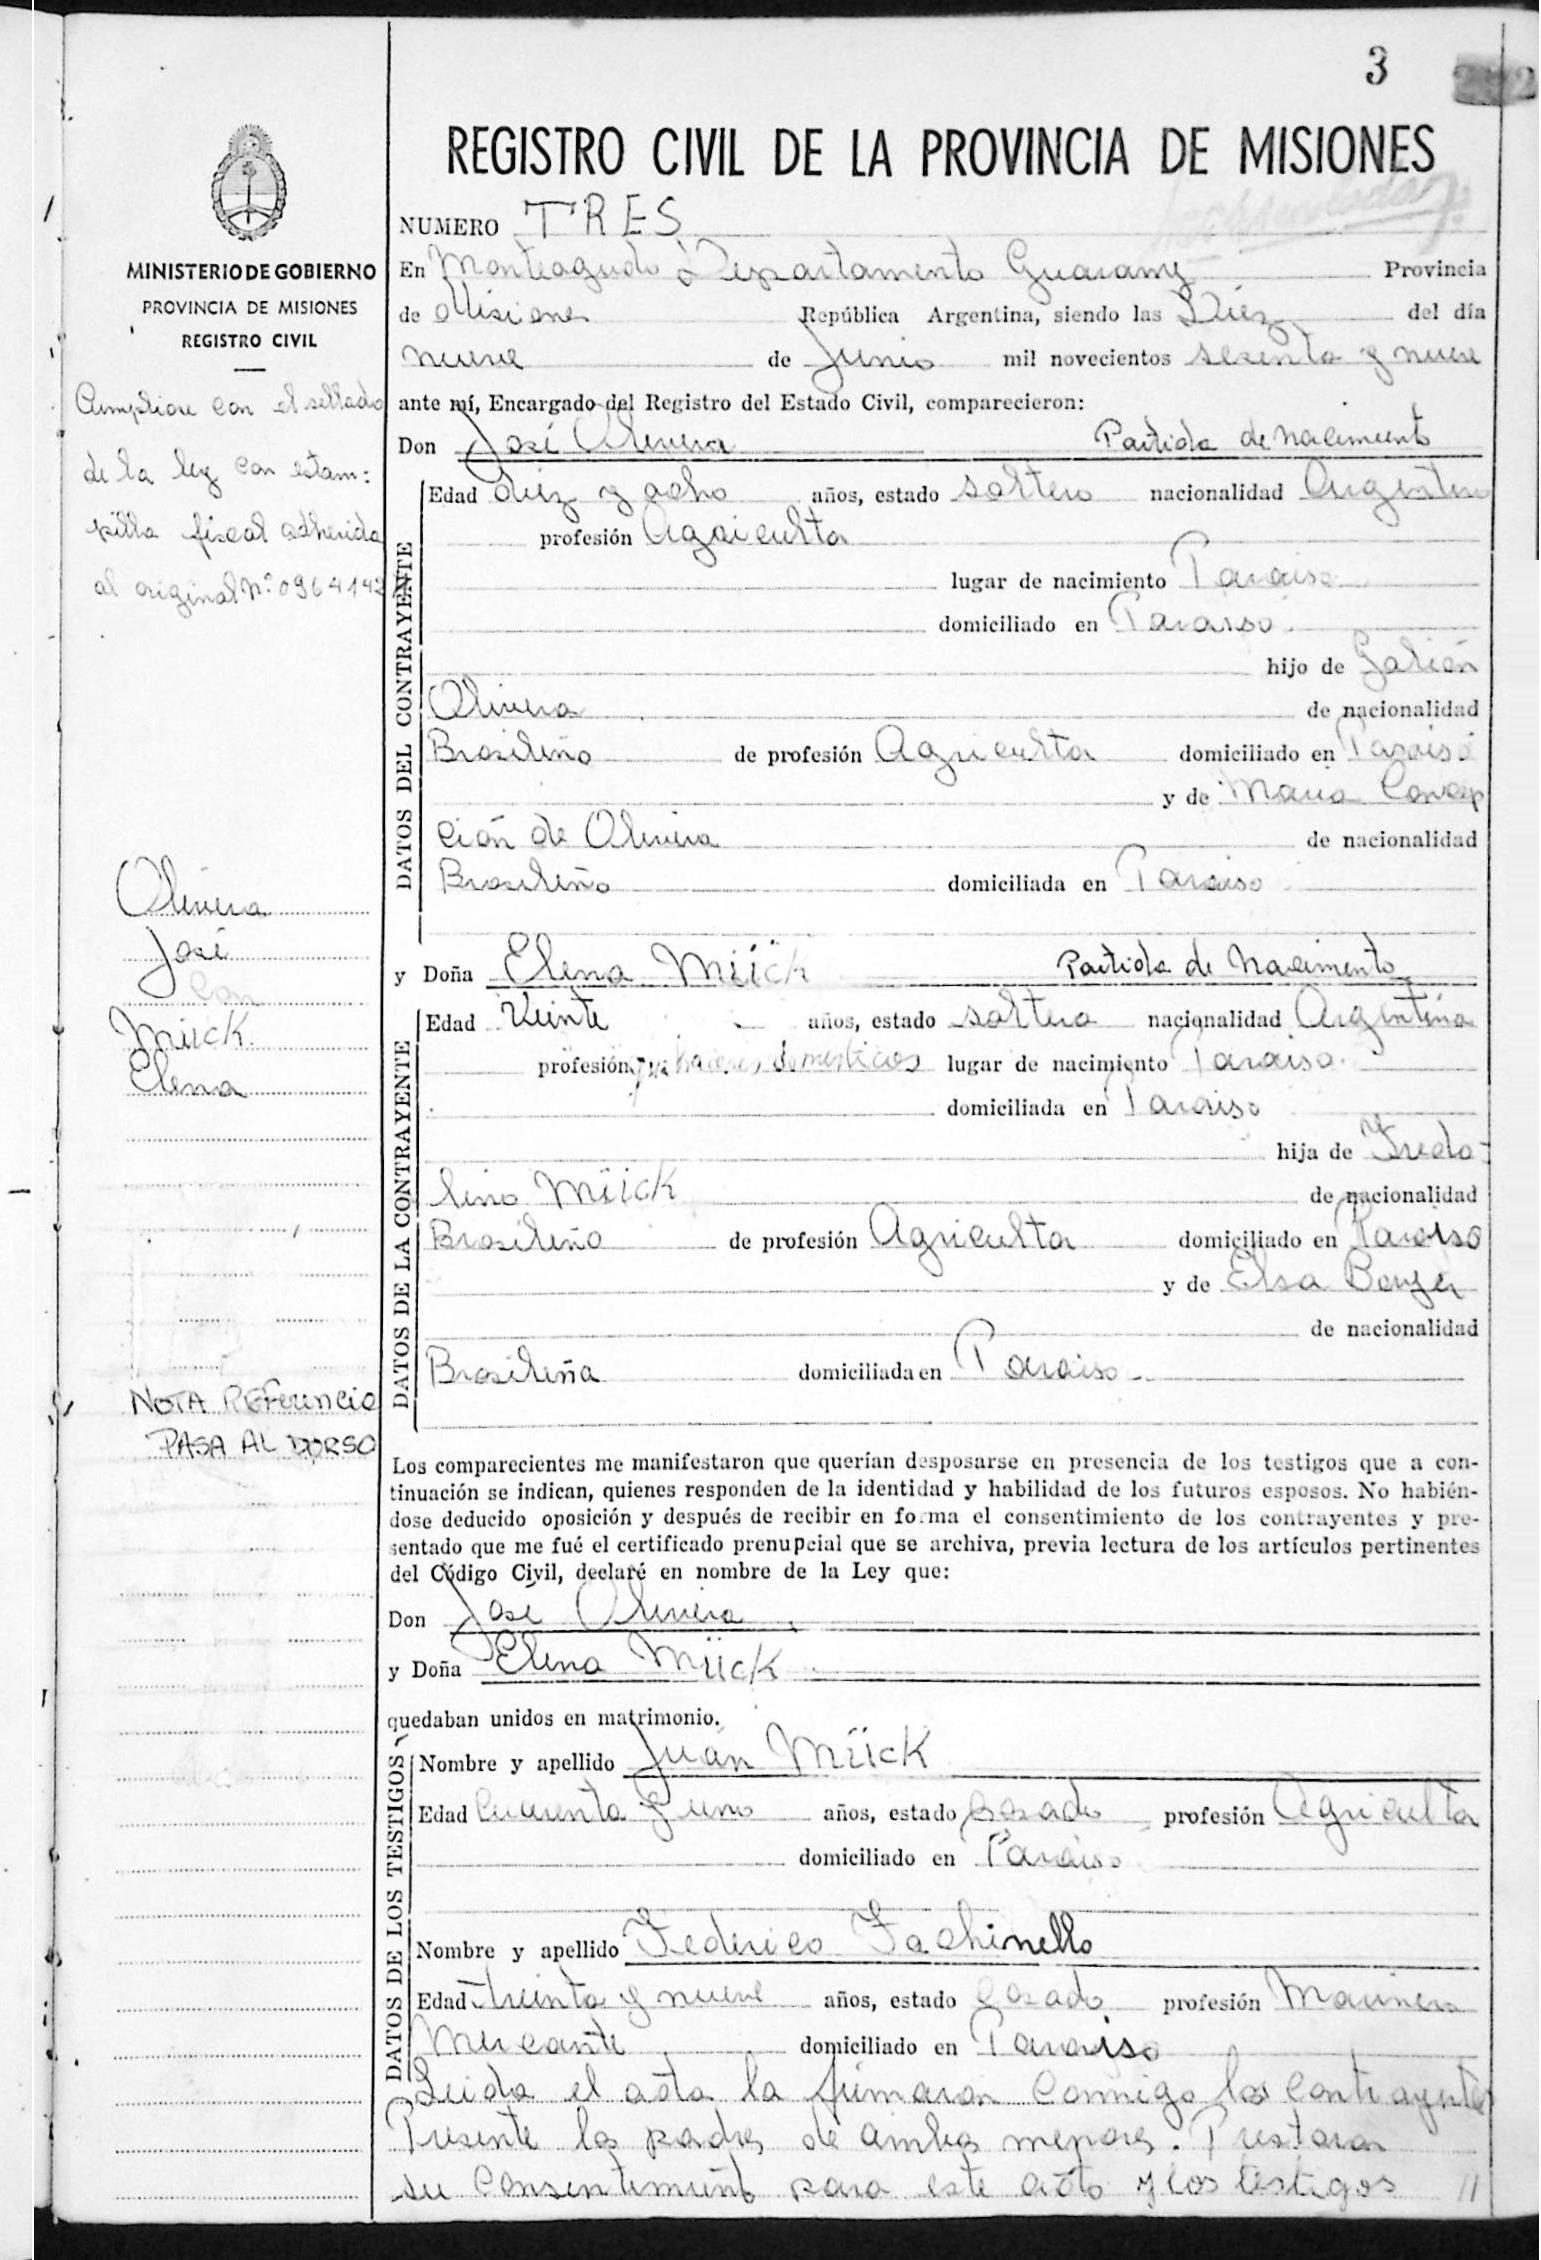 3
REGISTRO CIVIL DE LA PROVINCIA DE MISIONES
NUMERO TRES
MINISTERIO DE GOBIERNO
PROVINCIA DE MISIONES
REGISTRO CIVIL
En Monteagudo Departamento Guarany Provincia
de Misiones República Argentina, siendo las Diez del día
nueve de Junio mil novecientos sesenta y nueve
ante mí, Encargado del Registro del Estado Civil, comparecieron:
Cumpliose con el sellado
de la ley con estam:
pilla fiscal adherida
al original Nº 0964142
Don José Olivera Partida de nacimiento
DATOS DEL CONTRAYENTE
Edad diez y ocho años, estado soltero nacionalidad Argentino
profesión Agriculto
lugar de nacimiento Paraiso
domiciliado en Paraiso
hijo de
Olivera de nacionalidad
Brasileño de profesión Agriculto domiciliado en Paraiso
y de Maria Concep
ción de Olivera de nacionalidad
Brasileño domiciliada en Paraiso
Olivera
José
Con
Müick
Elena
y Doña Elena Müick Partida de Nacimento
DATOS DE LA CONTRAYENTE
Edad Veinte años, estado soltera nacionalidad Argentina
profesión quehaceres domesticos lugar de nacimiento Paraiso
domiciliada en Paraiso
hija de Fredo-
lino Müick de nacionalidad
Brasileño de profesión Agriculto domiciliado en Paraiso
y de Elsa
de nacionalidad
Brasileña domiciliada en Paraiso
NOTA REFerencia
PASA AL DORSO
Los comparecientes me manifestaron que querían desposarse en presencia de los testigos que a con-
tinuación se indican, quienes responden de la identidad y habilidad de los futuros esposos. No habién-
dose deducido oposición y después de recibir en forma el consentimiento de los contrayentes y pre-
sentado que me fué el certificado prenupcial que se archiva, previa lectura de los artículos pertinentes
del Código Civil, declaré en nombre de la Ley que:
Don José Olivera
y Doña Elena Müick
quedaban unidos en matrimonio.
DATOS DE LOS TESTIGOS
Nombre y apellido Juan Müick
Edad Cuarenta y uno años, estado casado profesión Agriculto
domiciliado en Paraiso
Nombre y apellido Federico Fachinello
Edad treinta y nueve años, estado Casado profesión Marinero
Mercante domiciliado en Paraiso
Leida el acta la firmaron conmigo los Contrayentes
Presente los padres de ambos menores. Prestaron
su Consentimiento para este acto y los testigos //